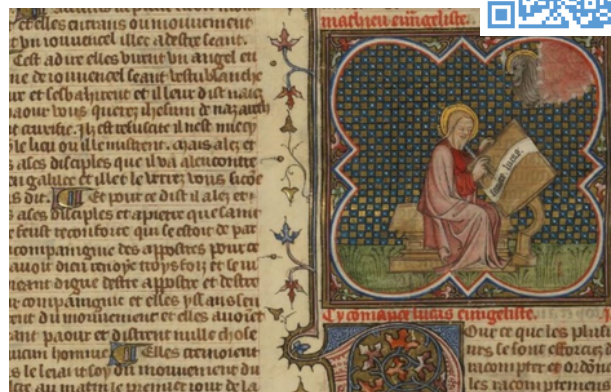 et elles entrans ou mouvement
et un iouvencel illec a destre seant.
Cest adire elles virent un angel en
me de iouvencel seant vestu blanche
et sesbahirent et il leur dist naiez
paour vous querez ihesum de nazareth
crucifie. Il est resuscite il nest mie cy
le lieu ou ille mistrent. mais alez et
a ses disciples que il va alencontre
en galilee et illec le verrez vous sicõe
dit. Et pour ce dist il alez et
a ses disciples et a pierre que saint
feust reconforte qui se estoit de par
compaignie des apostres pour ce
avoit dieu renoye troys foiz et se
digne destre appostre et destre
compaignie et elles yssans
du mouvement et elles avoiet
paour et distrent nulle chose
aucun homme Elles cremoient
le ou monument du
au matin le premier iour de la
matheu euũgeliste.
Cy comance lucas euũgeliste.
Our ce que les plus
urs se sont efforciez
racompter et ordõn
les racomptemens